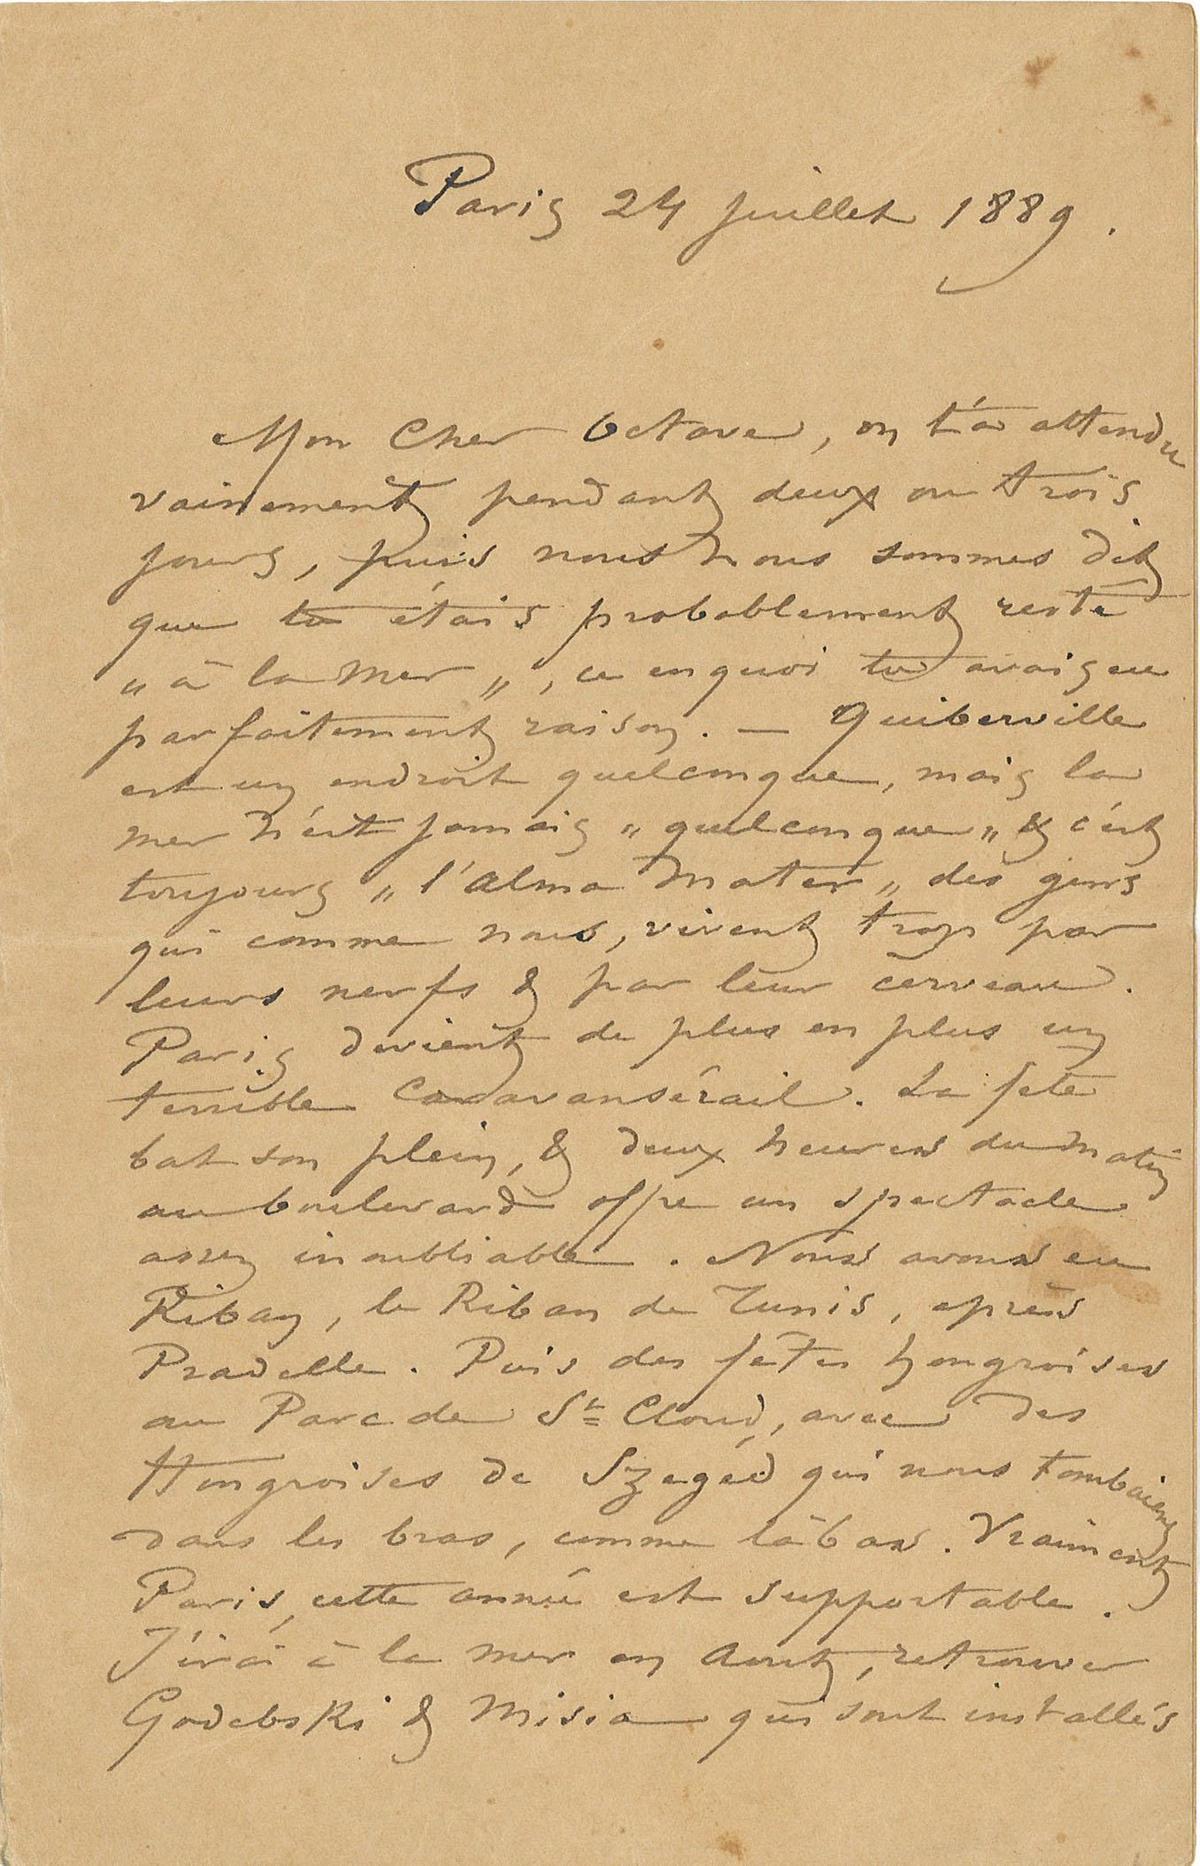 Paris 24 juillet 1889.
Mon Cher Octave, on t'a attendu
vainement pendant deux ou trois
jours, puis nous nous sommes dit
que tu étais probablement resté
„ à la Mer „, ce en quoi tu avais eu
parfaitement raison. — Quiberville
est un endroit quelconque, mais la
mer n'est jamais „ quelconque „ & c'est
toujours „ l'Alma Mater „ des gens
qui comme nous, vivent trop par
leurs nerfs & par leur cerveau.
Paris devient de plus en plus un
terrible Caravansérail. La fête
bat son plein, & deux heures du matin
au boulevard offre un spectacle
assez inoubliable. Nous avons eu
Riban, le Riban de Tunis, après
Pradelle. Puis des fêtes hongroises
au Parc de St Cloud, avec des
Hongroises de Szeged qui nous tombaient
dans les bras, comme là bas. Vraiment
Paris, cette année est supportable.
J'irai à la mer en Aout, retrouver
Godebski & Misia qui sont installés